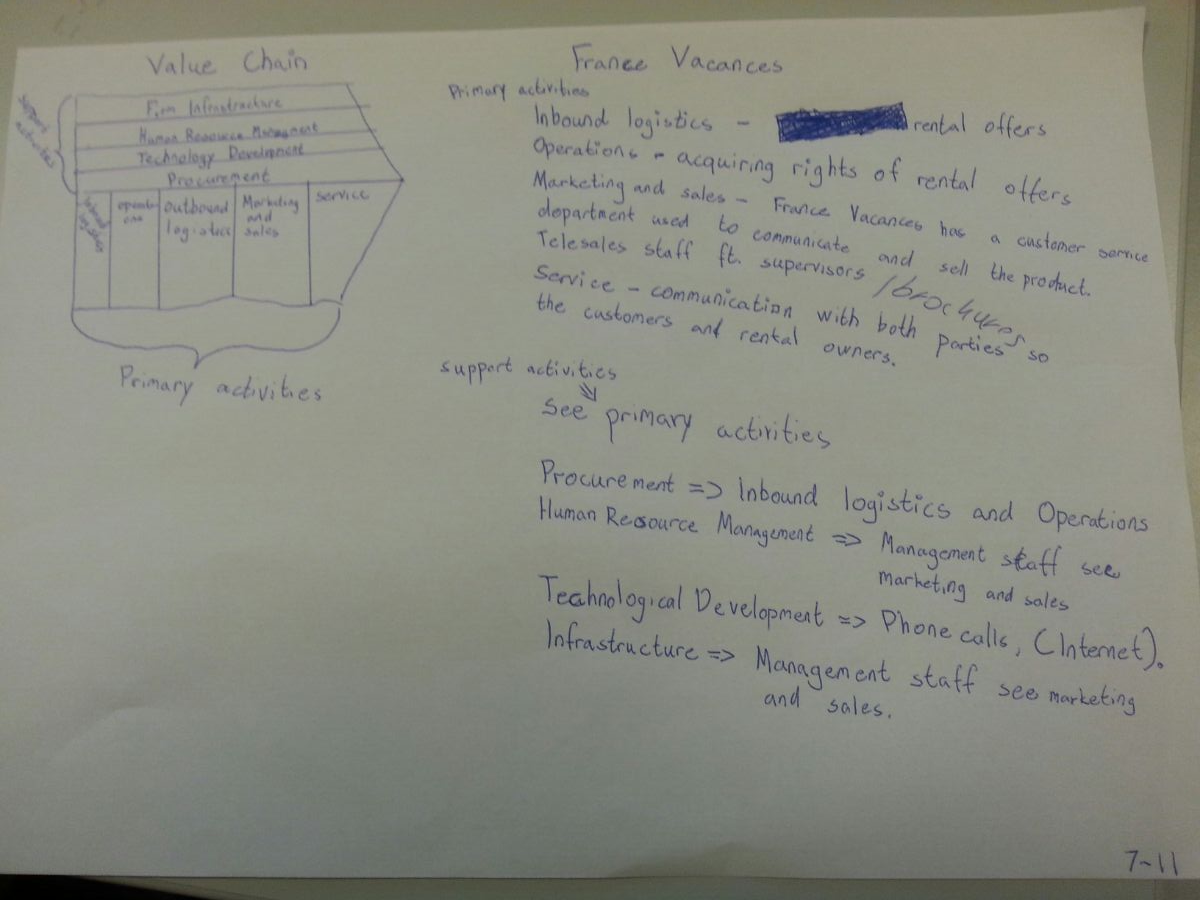 Value Chain
support activities
Firm Infrastructure
Human Resource Managment
Technology Development
Procurement
Inbound logistics
outbound logistics
Marketing and sales
service
Primary activities
France Vacances
Primary activities
Inbound logistics - rental offers
Operations - acquiring rights of rental offers
Marketing and sales - France Vacances has a customer service
department used to communicate and sell the product.
Telesales staff ft. supervisors /brochures
Service - communication with both parties so
the customers and rental owners.
support activities
see primary activities
Procurement => Inbound logistics and Operations
Human Resource Management => Management staff see
marketing and sales
Technological Development => Phone calls, (Internet).
Infrastructure => Management staff see marketing
and sales.
7-11